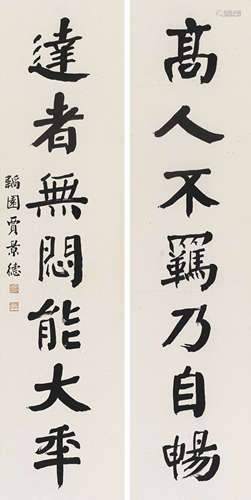 高人不羈乃自暢
達者無悶能大年
韜園賈景德